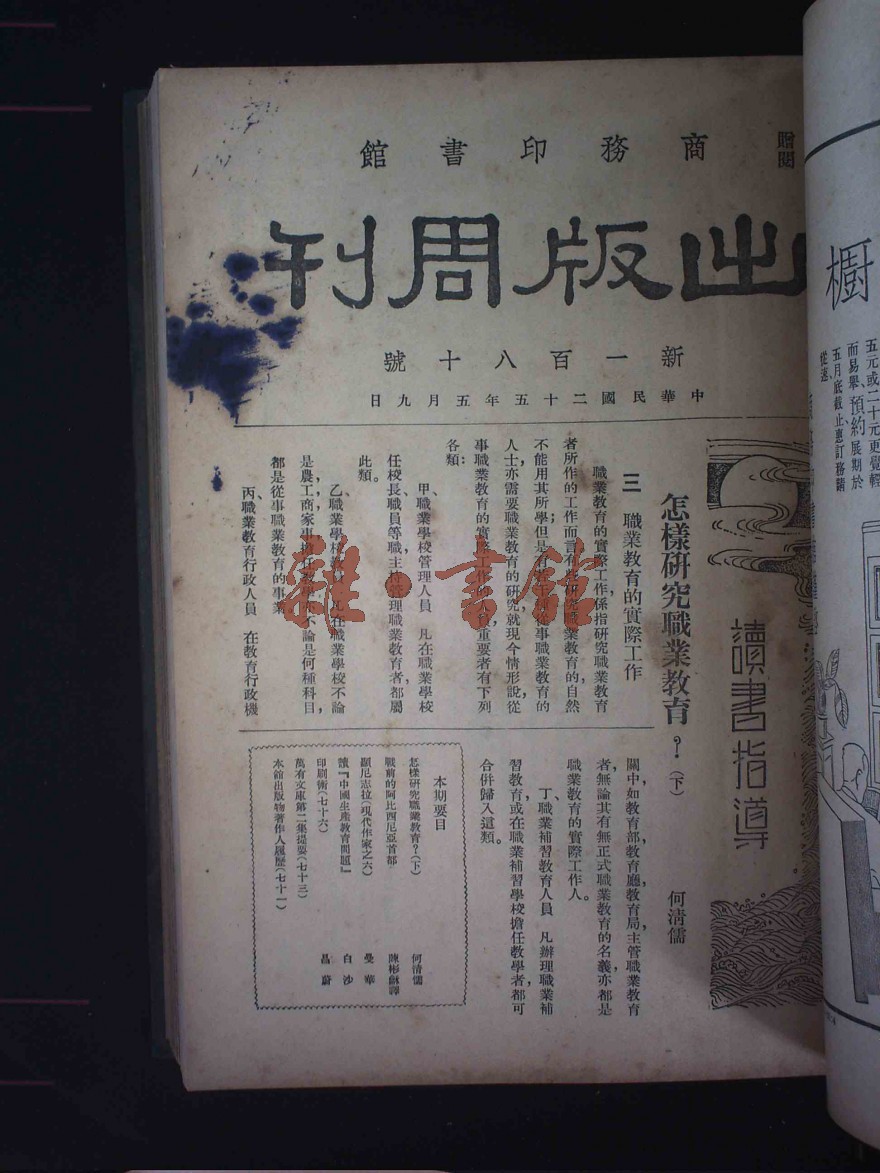 贈閱
商務印書館
出版周刊
新一百八十號
中華民國二十五年五月九日
讀書指導
怎樣研究職業教育？(下)
何清儒
三　職業教育的實際工作
職業教育的實際工作，係指研究職業教育
者所作的工作而言。有些研究職業教育的自然
不能用其所學；但是有
事職業教育的
人士亦需要職業教育的研究。就現今情形說，從
事職業教育的實際工作的人，重要者有下列
各類：
甲、職業學校管理人員　凡在職業學校
任校長、職員等職，主持管理職業教育者，都屬
此類。
乙、職業學校教員　凡在職業學校，不論
是農、工、商、家事，擔任教學，不論是何種科目，
都是從事職業教育的事業。
丙、職業教育行政人員　在教育行政機
關中如教育部、教育廳、教育局，主管職業教育
者，無論其有無正式職業教育的名義，亦都是
職業教育的實際工作人。
丁、職業補習教育人員　凡辦理職業補
習教育，或在職業補習學校擔任教學者，都可
合併歸入這類。
本期要目
怎樣研究職業教育？(下)　何清儒
戰前的阿比西尼亞首都　陳彬龢譯
顯尼志拉(現代作家之六)　曼華
讀『中國生產教育問題』　白沙
印刷術(七十六)　昌蔚
萬有文庫第二集提要(七十三)
本館出版物著作人履歷(七十一)
櫥
五元或二十元更覺輕
而易舉、預約展期於
五月底截止應訂務請
從速、
雜·書館